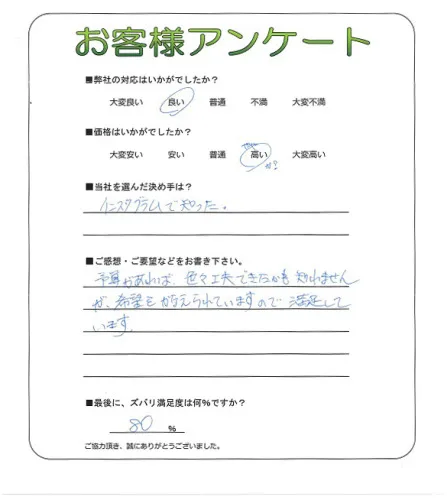 お客様アンケート
■弊社の対応はいかがでしたか？
大変良い 良い 普通 不満 大変不満
■価格はいかがでしたか？
大変安い 安い 普通 高い 大変高い
か？
■当社を選んだ決め手は？
インスタグラムで知った。
■ご感想・ご要望などをお書き下さい。
予算があれば、色々工夫できたかも知れません
が、希望も かなえられていますので 満足して
います。
■最後に、ズバリ満足度は何％ですか？
80 ％
ご協力頂き、誠にありがとうございました。